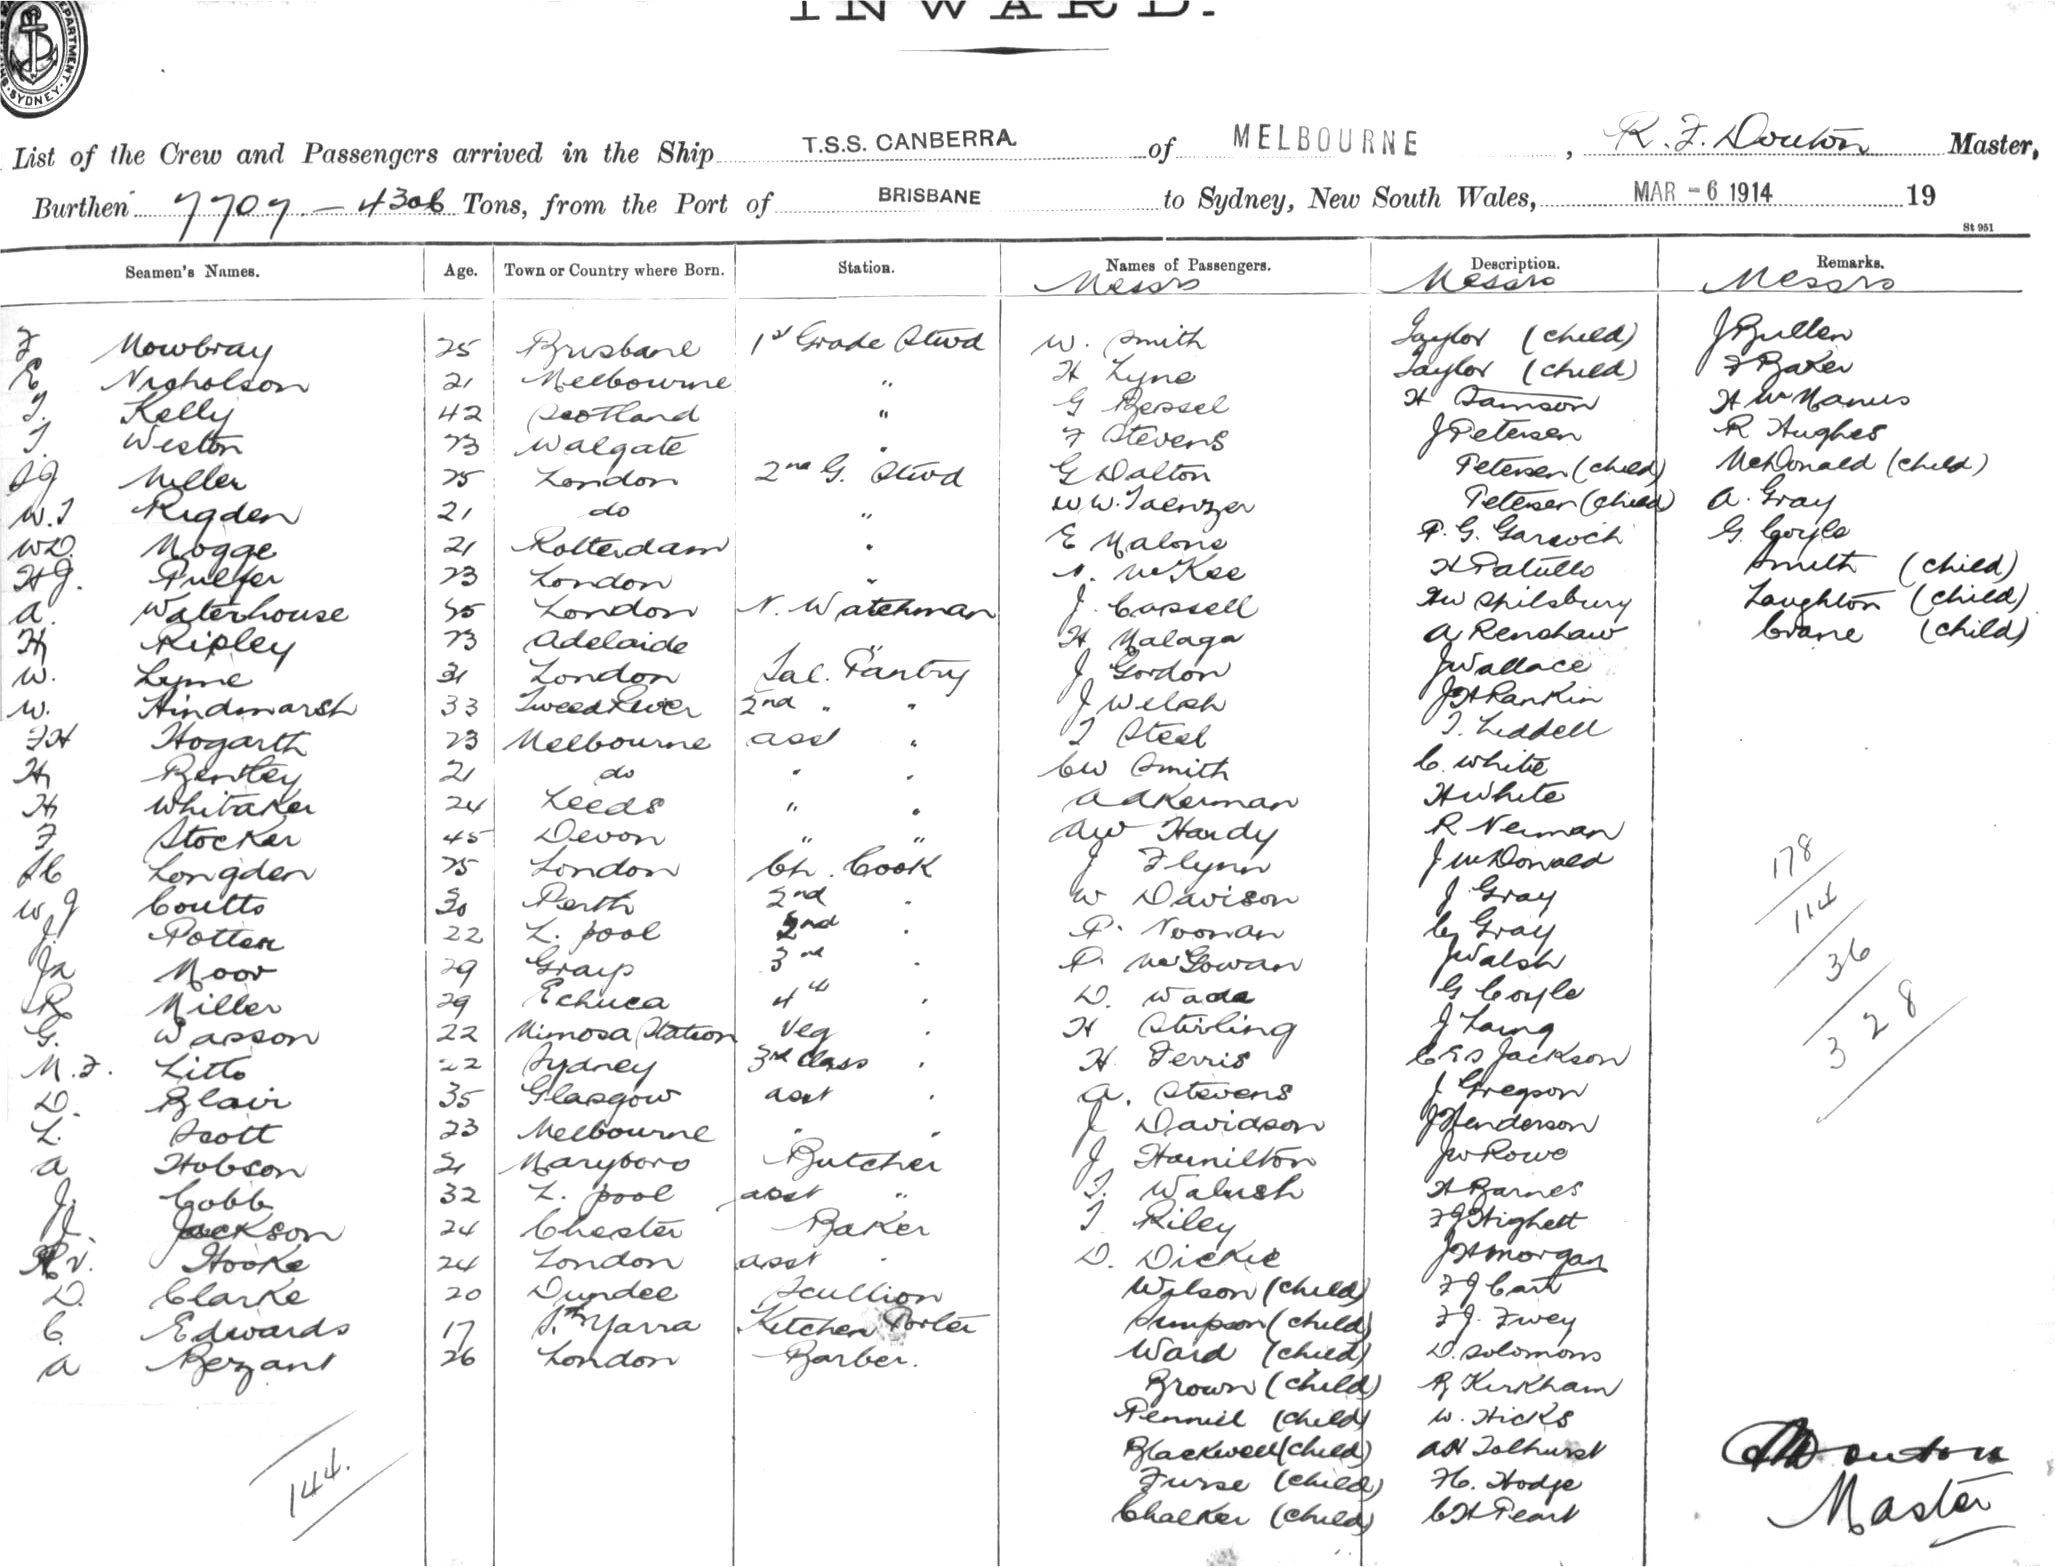 INWARD.
DEPARTMENT. SYDNEY.
List of the Crew and Passengers arrived in the Ship T.S.S. CANBERRA. of MELBOURNE, R. F. Douton Master,
Burthen 7707 - 4306 Tons, from the Port of BRISBANE to Sydney, New South Wales, MAR -6 1914 19
St 951
Seamen's Names. Age. Town or Country where Born. Station. Names of Passengers. Description. Remarks.
Messrs Messrs Messrs
F Mowbray 25 Brisbane 1st Grade Stwd W. Smith Taylor (child) J Bullen
E Nicholson 21 Melbourne " H Lyne Taylor (child) F Baker
T. Kelly 42 Scotland " G Bessel H Samson H McManus
T. Weston 23 Walgate " F Stevens J Petersen R Hughes
Miller 25 London 2nd G. Stwd G Dalton Petersen (child) McDonald (child)
W.T Rigden 21 do " W W. Taenzer Petersen (child) A. Gray
WD. Mogge 21 Rotterdam " E Malone P. G. Garsoch G. Coyle
H J. Pulfer 23 London " McKee H Patullo Smith (child)
A. Waterhouse London N. Watchman J. Cassell HW Spilsbury Laughton (child)
H Ripley 23 Adelaide " H Malaga A Renshaw Crane (child)
W. Lyme 31 London Sal. Pantry J Gordon J Wallace
W. Hindmarsh 33 Tweed River 2nd " " J Welsh J H Rankin
FH Hogarth 23 Melbourne asst " T Steel T. Liddell
H Bentley 21 do " " CW Smith C. White
H Whitaker 24 Leeds " " A Akerman H White
F Stocker 45 Devon " " AW Hardy R Neiman
Longden 25 London Ch. Cook J Flynn J McDonald
W J Coutts 30 Perth 2nd " W Davison J Gray
J. Potter 22 L. pool 2nd " P. Noonan Gray
Ja Moor 29 Grays 3rd " P. McGowan J Walsh
R Miller 29 Echuca 4th " D. Wade G Coyle
G. Wasson 22 Mimosa Station Veg " H Stirling J Laing
M. F. Litto 22 Sydney 3rd Class " H. Ferris Jackson
D. Blair 35 Glasgow asst " A. Stevens J. Gregson
L. Scott 23 Melbourne " " J Davidson J Henderson
A Hobson 21 Maryboro Butcher J Hamilton JW Rowe
J. Cobb 32 L. pool asst " T. Walush H Barnes
J. Jackson 24 Chester Baker T Riley F J Highett
R v. Hooke 24 London asst " D. Dickie J H Morgan
D. Clarke 20 Dundee Scullion Wilson (child) F J Cart
C. Edwards 17 Sth Yarra Kitchen Porter Simpson (child) F J. Fwey
A Bezant 26 London Barber. Ward (child) D. Solomons
Brown (child) R Kirkham
Penniel (child) W. Hicks
Blackwell (child) AH Tolhurst
Furse (child) Hodge
Chalker (child) C H Peart
178
114
36
328
144.
Douton
Master